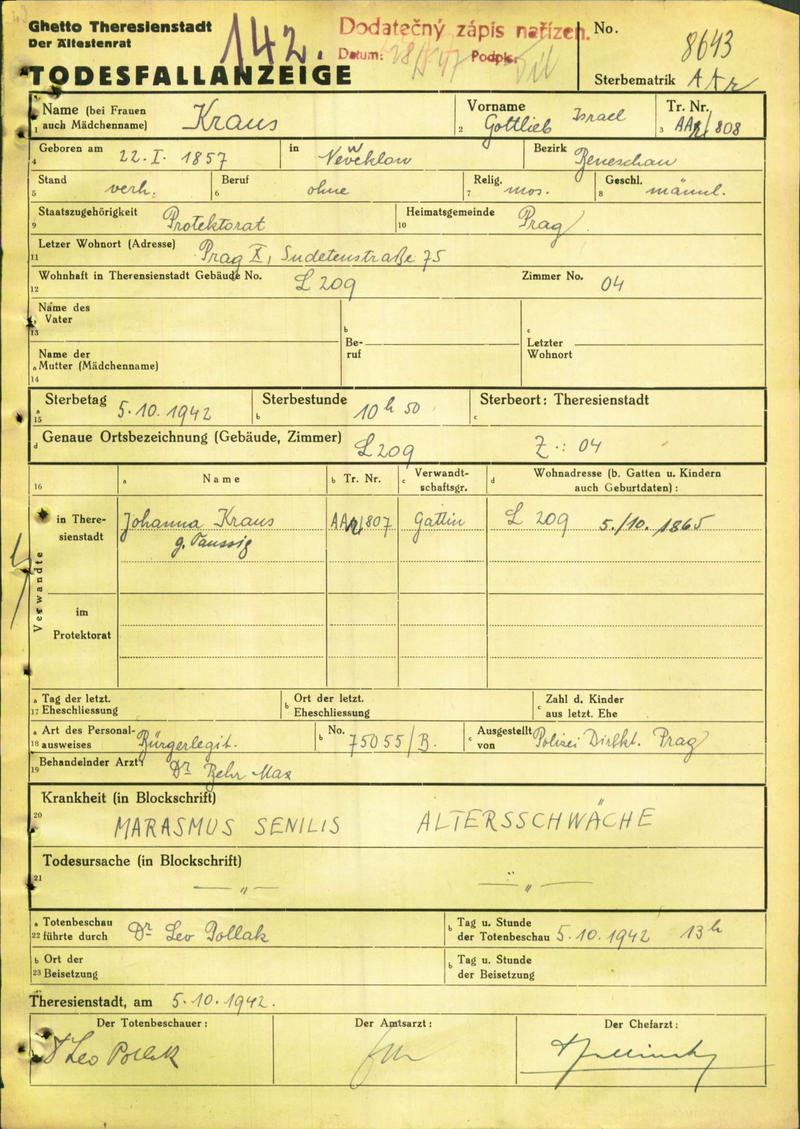 Ghetto Theresienstadt
Der Ältestenrat
142.
Dodatečný zápis nařízen.
Datum: Podpis:
No. 8643
Sterbematrik
TODESFALLANZEIGE
Name (bei Frauen auch Mädchenname) Kraus
1
Vorname Gottlieb Israel
2
Tr. Nr. 808
3
Geboren am 22. I. 1857
4
in Neveklow
Bezirk Beneschau
Stand verh.
5
Beruf ohne
6
Relig. mos.
7
Geschl. männl.
8
Staatszugehörigkeit Protektorat
9
Heimatsgemeinde Prag
10
Letzer Wohnort (Adresse) Prag X, Sudetenstraße 75
11
Wohnhaft in Theresienstadt Gebäude No. L 209
12
Zimmer No. 04
Name des Vater
13
b Beruf
c Letzter Wohnort
Name der
a Mutter (Mädchenname)
14
a Sterbetag 5.10.1942
15
b Sterbestunde 10 h 50
c Sterbeort: Theresienstadt
d Genaue Ortsbezeichnung (Gebäude, Zimmer) L 209 Z.: 04
16
a Name
b Tr. Nr.
c Verwandtschaftsgr.
d Wohnadresse (b. Gatten u. Kindern auch Geburtdaten):
Verwandte
in Theresienstadt
Johanna Kraus 807 Gattin L 209 5./10. 1865
g. Taussig
im Protektorat
a Tag der letzt.
17 Eheschliessung
b Ort der letzt. Eheschliessung
c Zahl d. Kinder aus letzt. Ehe
a Art des Personal-
18 ausweises Bürgerlegit.
b No. 75055/B.
c Ausgestellt von Polizei Direkt. Prag
Behandelnder Arzt Dr Behr Max
19
Krankheit (in Blockschrift)
20
MARASMUS SENILIS ALTERSSCHWÄCHE
Todesursache (in Blockschrift)
21
— " — — " —
a Totenbeschau
22 führte durch Dr Leo Pollak
b Tag u. Stunde der Totenbeschau 5.10.1942 13 h
b Ort der
23 Beisetzung
b Tag u. Stunde der Beisetzung
Theresienstadt, am 5.10.1942.
Der Totenbeschauer:
Der Amtsarzt:
Der Chefarzt:
Dr Leo Pollak